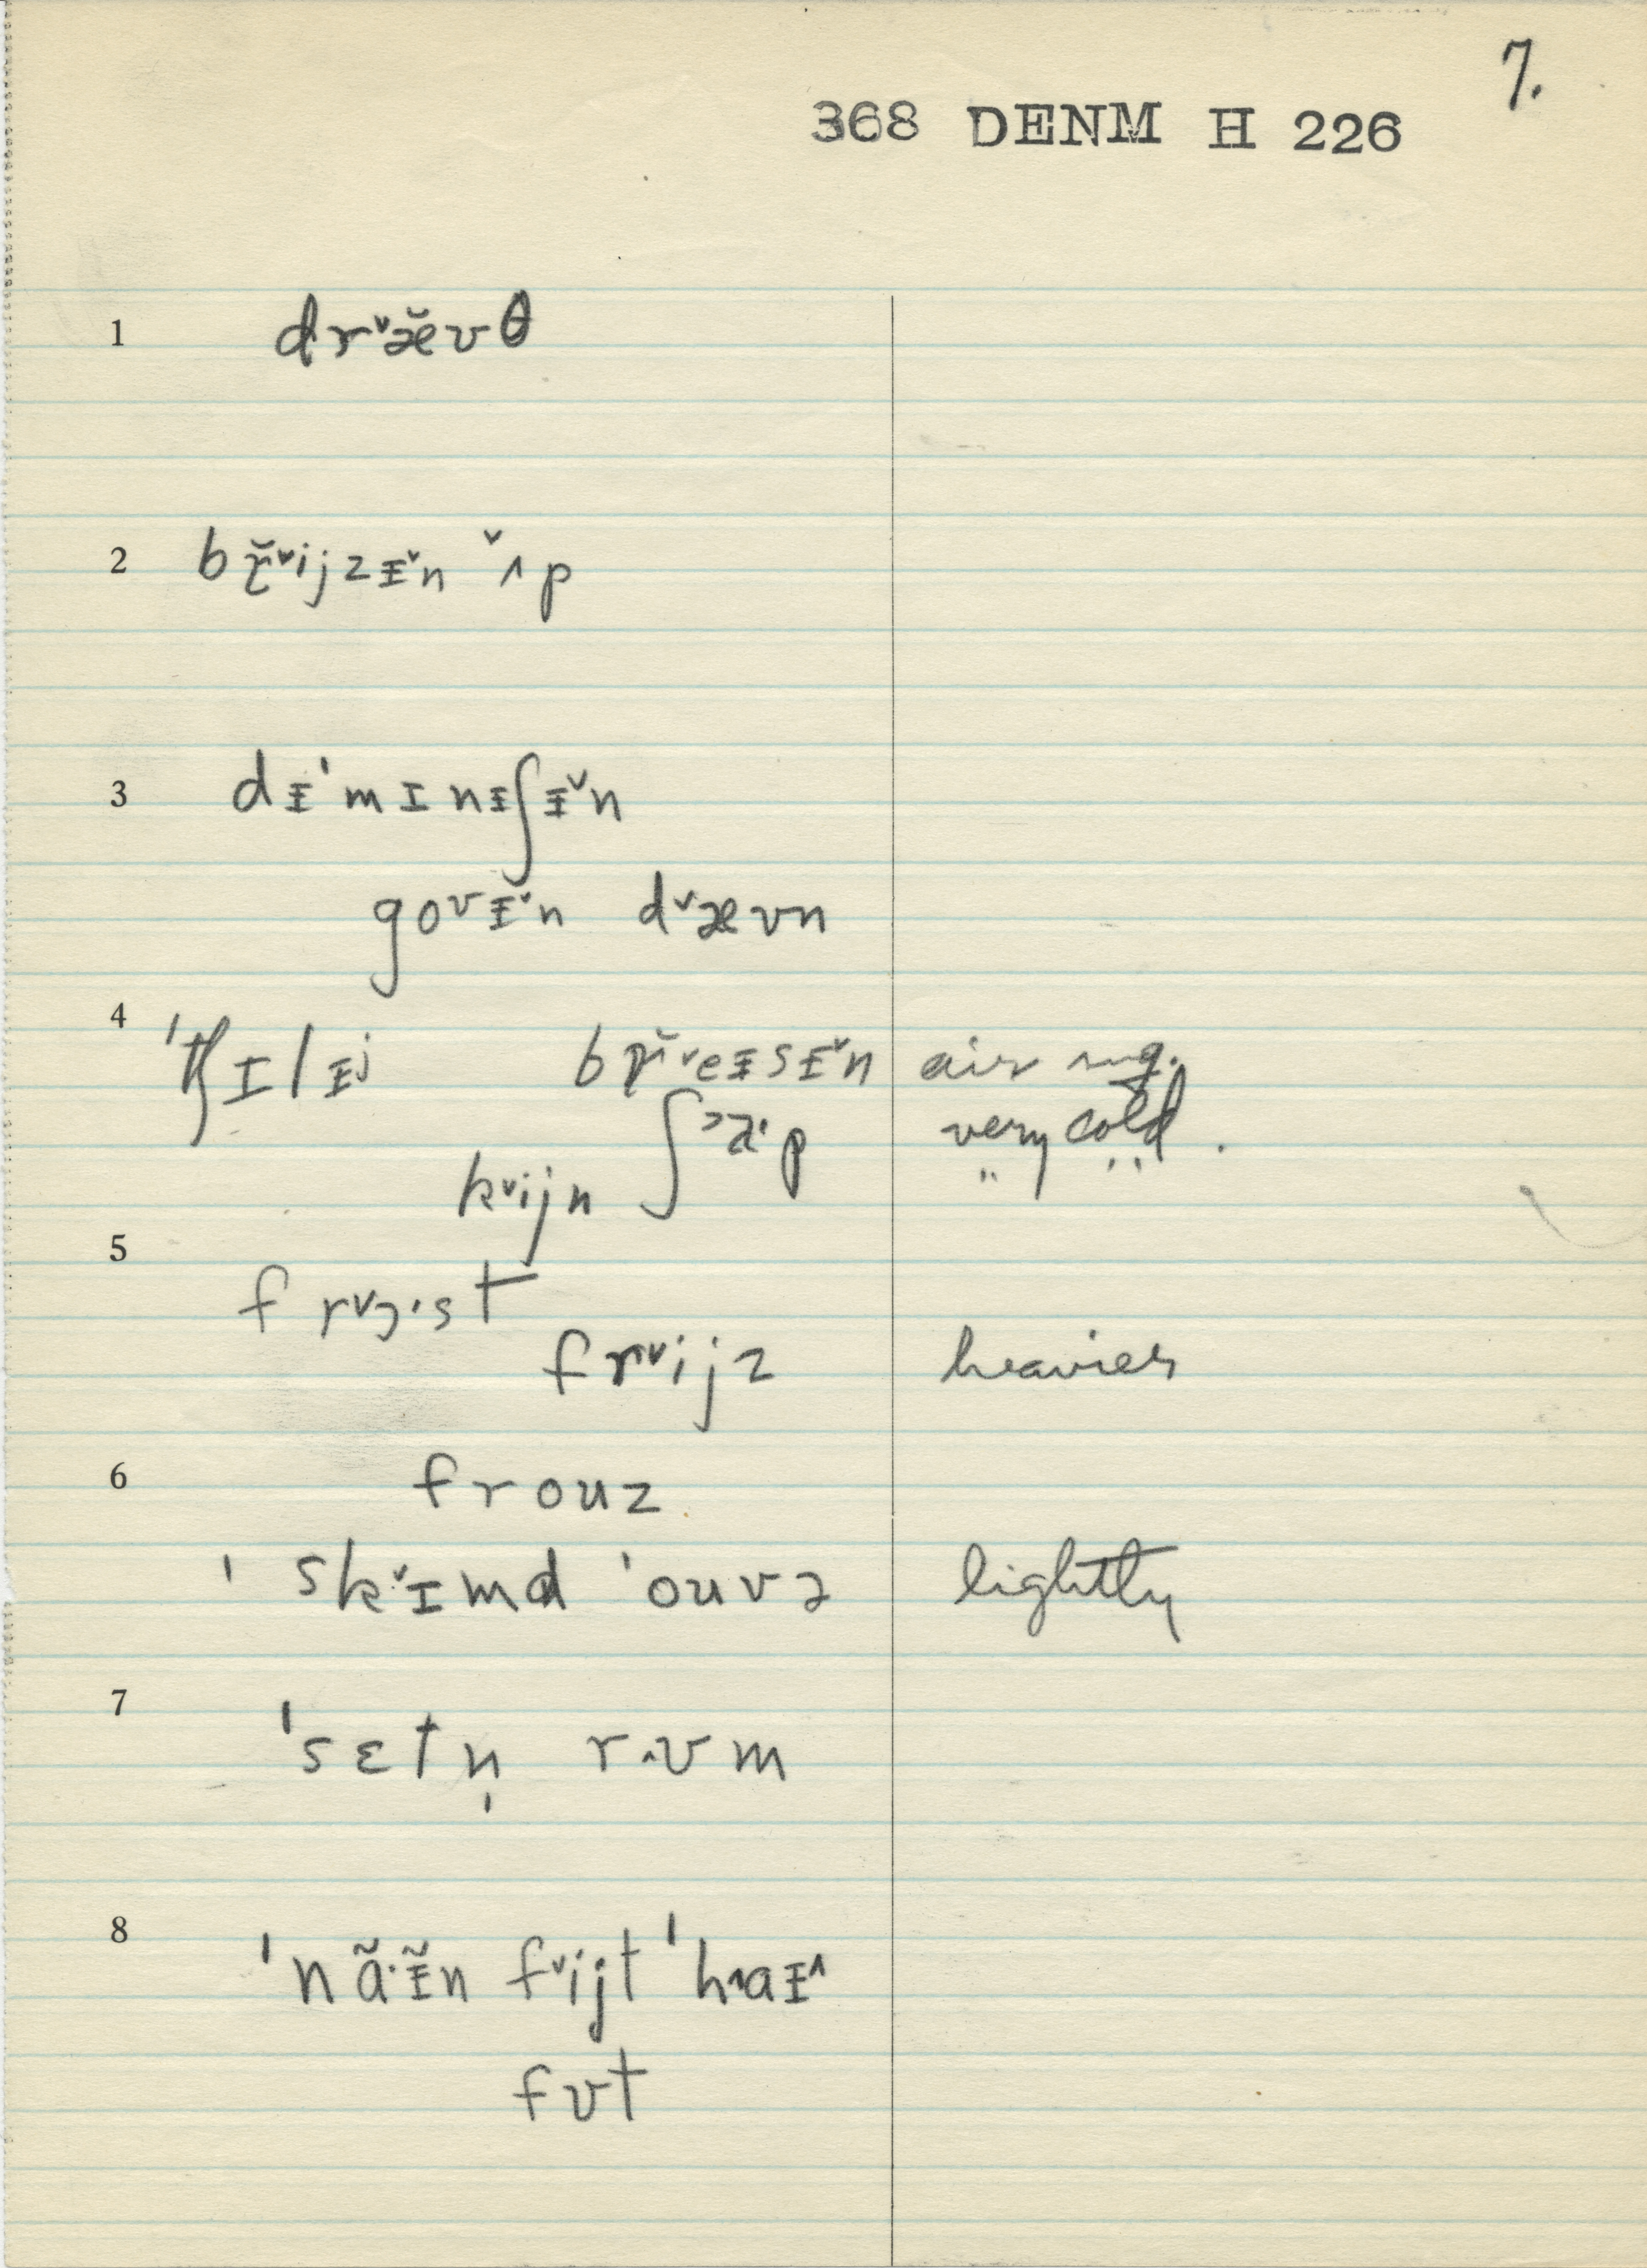 7.
368 DENM H 226
1 drˇæ̆ʊθ
2 br̆ˇijzᵻˇn ˇʌp
3 dᵻˈmɪnᵻʃᵻˇn
goʊᵻˇn dˇæʊn
4 ˈtʃɪlᵻj br̆ˇeᵻsᵻˇn air
kˇijn ʃ
very cold.
5 frˇɔ·st
frˇijz heavier
6 frouz
ˈskˇɪmd ˈouvə lightly
7 ˈsɛtn̩ rʌʊm
8 ˈnã·ᵻ̃n fˇijt ˈhʌaᵻ^
fʊt